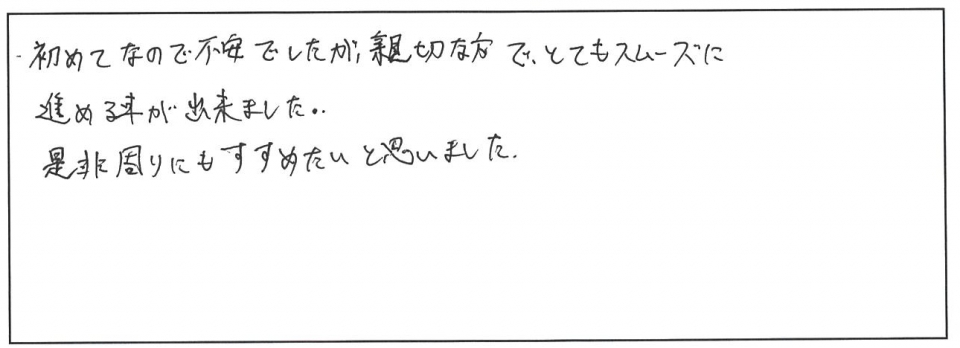 ・初めてなので不安でしたが、親切な方で、とてもスムーズに
進める事が出来ました。
是非周りにもすすめたいと思いました。